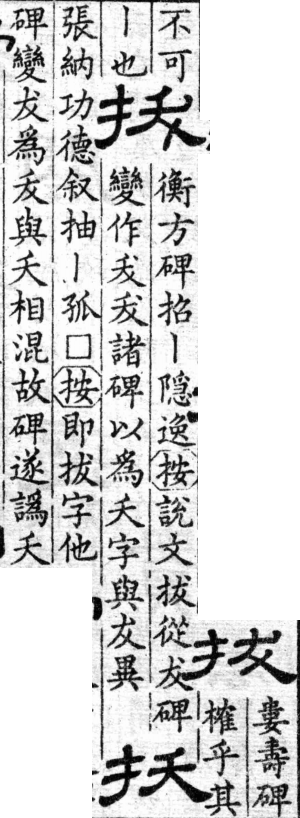 拔
婁壽碑
榷乎其
不可
丨也
扷
衡方碑招丨隐逸按說文拔從犮碑
變作叐叐諸碑以為夭字與犮異
扷
張納功德叙抽丨孤□按即拔字他
碑變犮為叐與夭相混故碑遂譌夭